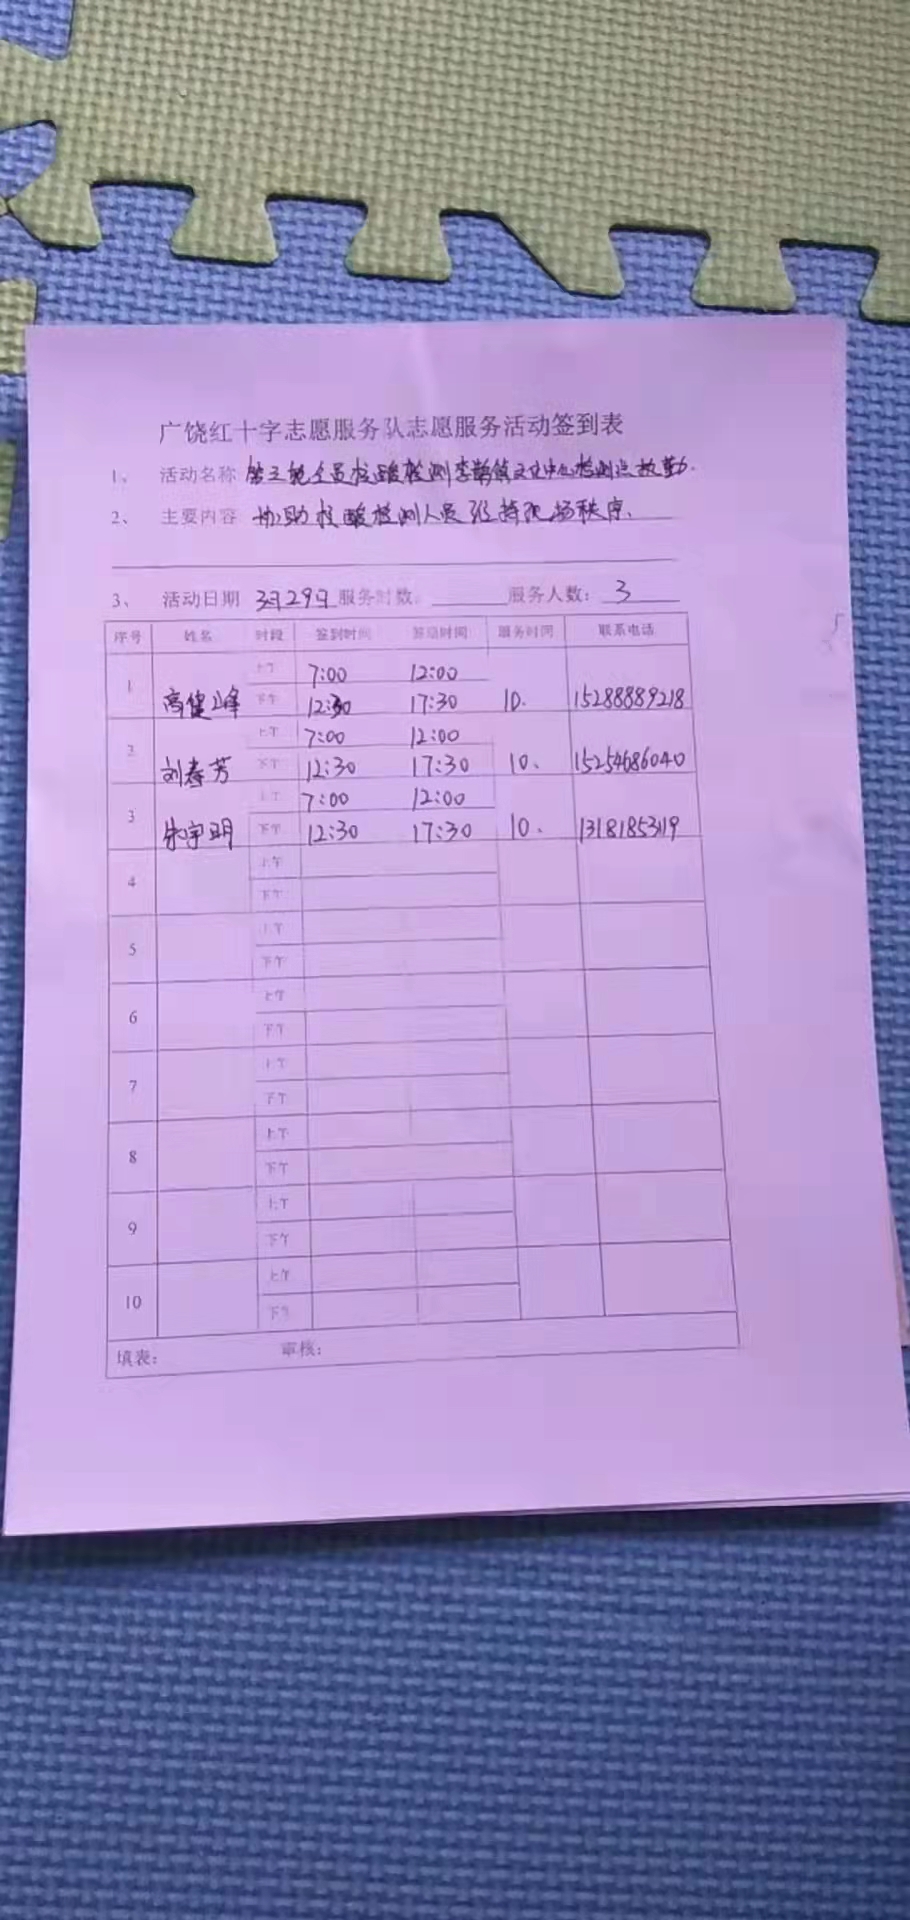 广饶红十字志愿服务队志愿服务活动签到表
1、 活动名称 第三轮全员核酸检测李鹊镇文化中心检测点执勤.
2、 主要内容 协助核酸检测人员维持现场秩序、
3、 活动日期 3月29日 服务时数: 服务人数: 3
序号 姓名 时段 签到时间 签退时间 服务时间 联系电话
上午 7:00 12:00
1 高健峰 下午 12:30 17:30 10. 15288889218
上午 7:00 12:00
2 刘春芳 下午 12:30 17:30 10、 15254686040
上午 7:00 12:00
3 朱宇明 下午 12:30 17:30 10、 13181853119
上午
4
下午
上午
5
下午
上午
6
下午
上午
7
下午
上午
8
下午
上午
9
下午
上午
10
下午
填表: 审核: